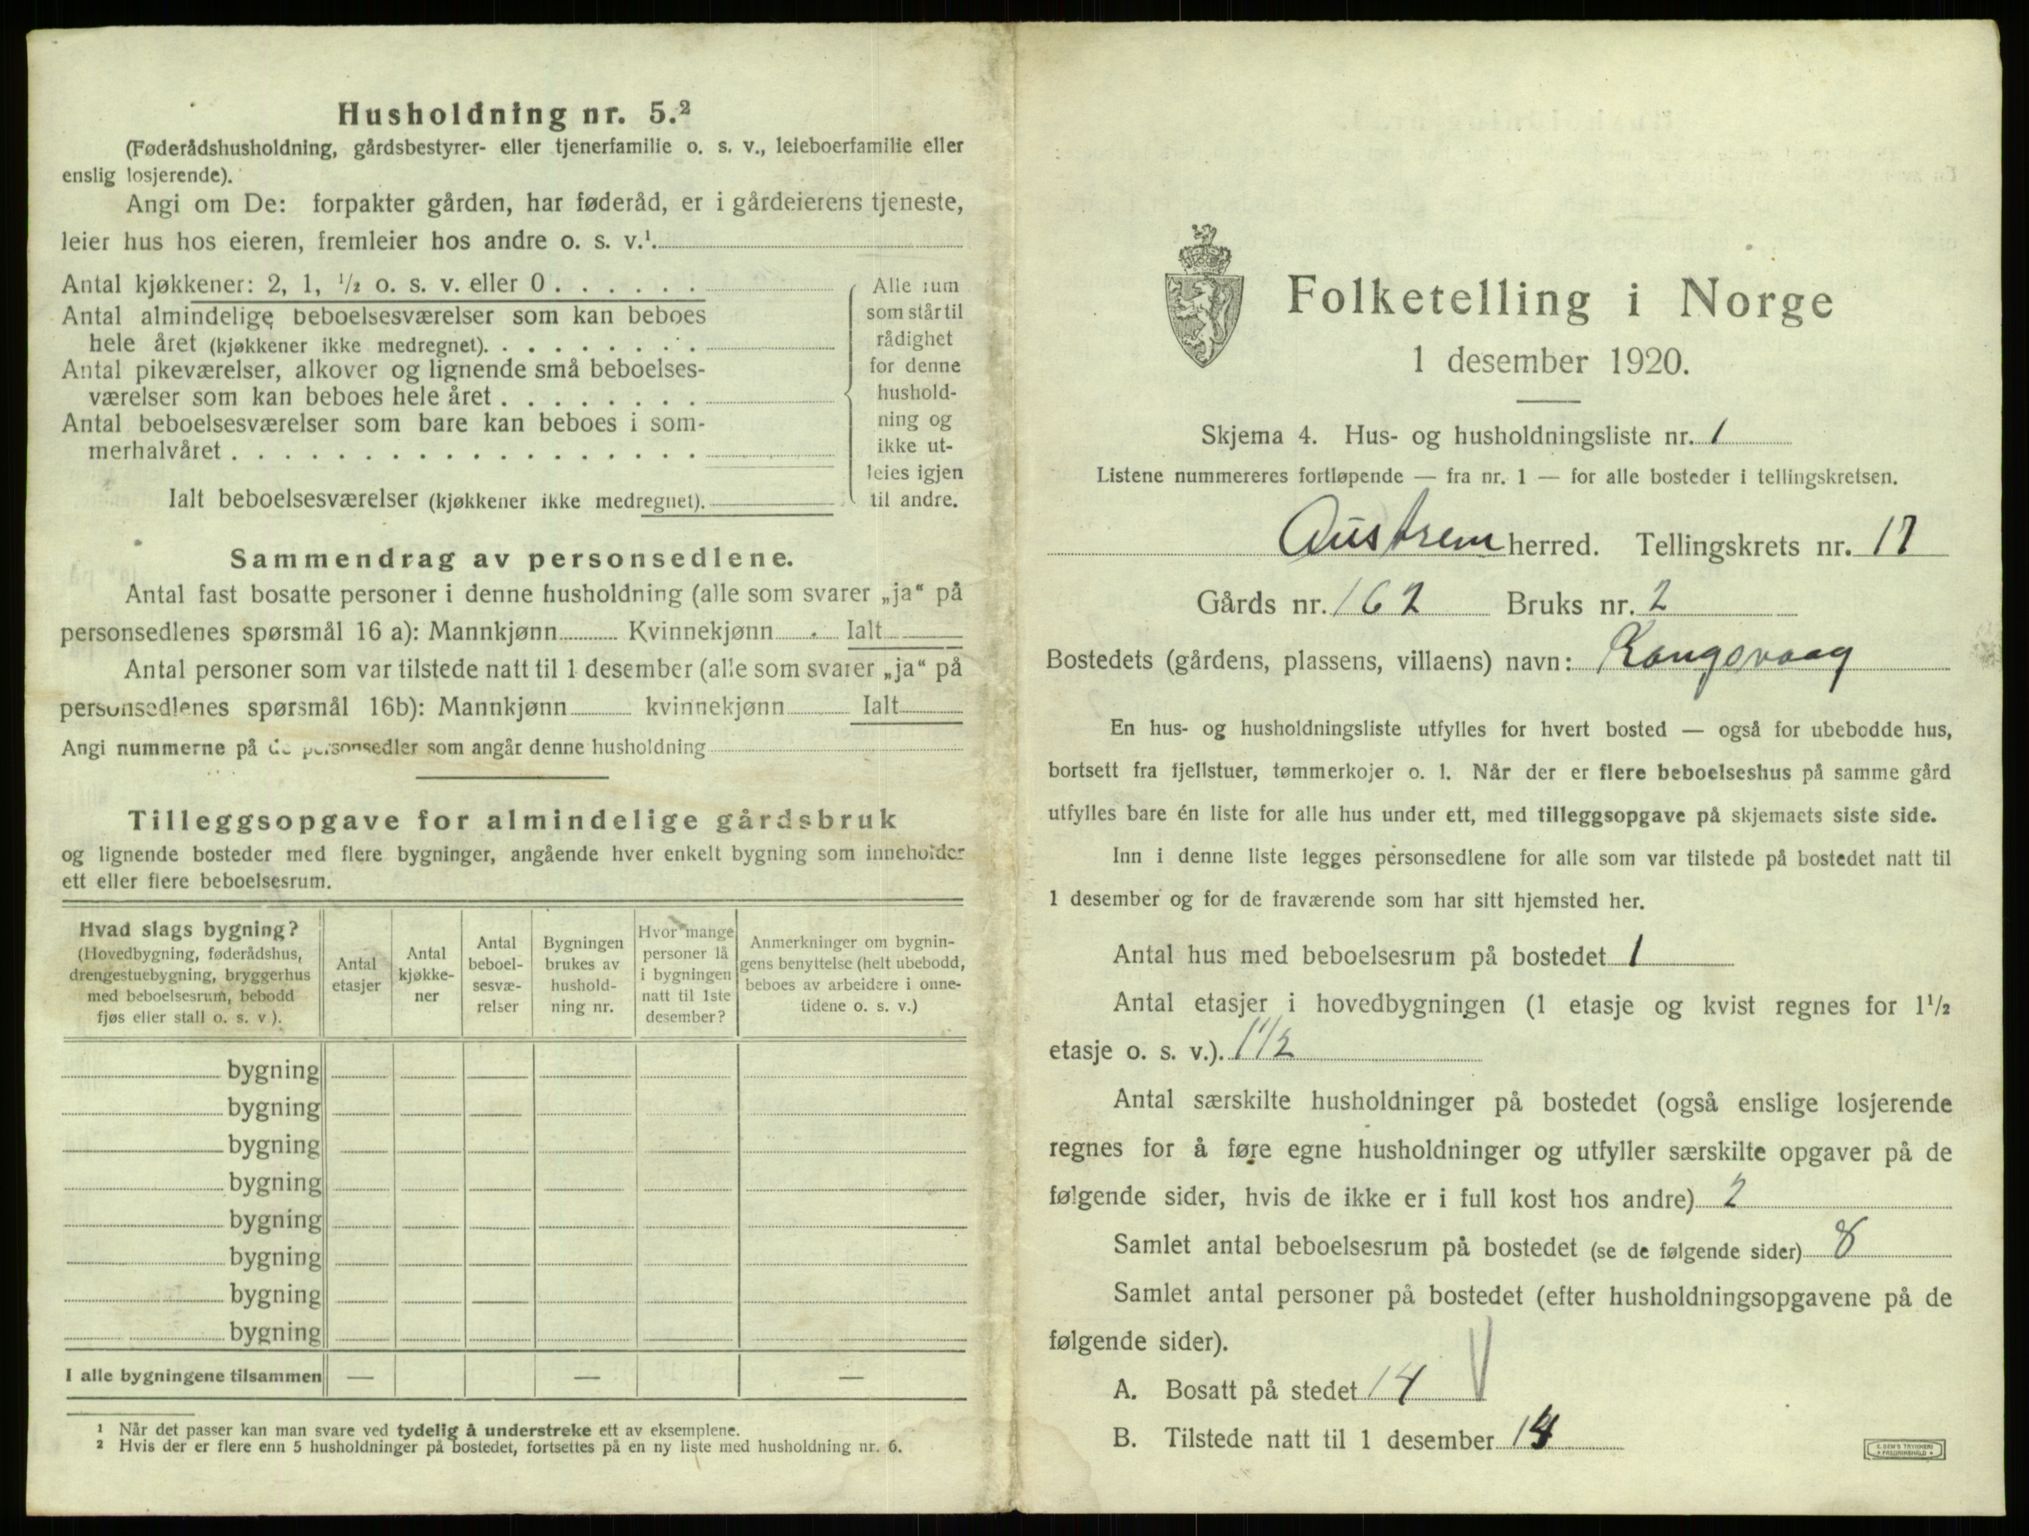 Husholdning nr. 5.²
(Føderådshusholdning, gårdsbestyrer- eller tjenerfamilie o. s. v., leieboerfamilie eller
enslig losjerende).
Angi om De: forpakter gården, har føderåd, er i gårdeierens tjeneste,
leier hus hos eieren, fremleier hos andre o. s. v.¹
Antal kjøkkener: 2, 1, ½ o. s. v. eller 0 . . . . . .
Antal almindelige beboelsesværelser som kan beboes
hele året (kjøkkener ikke medregnet). . . . . . . . .
Antal pikeværelser, alkover og lignende små beboelses-
værelser som kan beboes hele året . . . . . . . .
Antal beboelsesværelser som bare kan beboes i som-
merhalvåret . . . . . . . . . . . . . . . . . .
Ialt beboelsesværelser (kjøkkener ikke medregnet).
Alle rum
som står til
rådighet
for denne
hushold-
ning og
ikke ut-
leies igjen
til andre.
Sammendrag av personsedlene.
Antal fast bosatte personer i denne husholdning (alle som svarer „ja“ på
personsedlenes spørsmål 16 a): Mannkjønn Kvinnekjønn Ialt
Antal personer som var tilstede natt til 1 desember (alle som svarer „ja“ på
personsedlenes spørsmål 16b): Mannkjønn kvinnekjønn Ialt
Angi nummerne på de personsedler som angår denne husholdning
Tilleggsopgave for almindelige gårdsbruk
og lignende bosteder med flere bygninger, angående hver enkelt bygning som inneholder
ett eller flere beboelsesrum.
Hvad slags bygning?
(Hovedbygning, føderådshus,
drengestuebygning, bryggerhus
med beboelsesrum, bebodd
fjøs eller stall o. s. v.).
Antal
etasjer
Antal
kjøkke-
ner
Antal
beboel-
sesvæ-
relser
Bygningen
brukes av
hushold-
ning nr.
Hvor mange
personer lå
i bygningen
natt til 1ste
desember?
Anmerkninger om bygnin-
gens benyttelse (helt ubebodd,
beboes av arbeidere i onne-
tidene o. s. v.)
bygning
bygning
bygning
bygning
bygning
bygning
bygning
bygning
I alle bygningene tilsammen — — —
¹ Når det passer kan man svare ved tydelig å understreke ett av eksemplene.
² Hvis der er flere enn 5 husholdninger på bostedet, fortsettes på en ny liste med husholdning nr. 6.
Folketelling i Norge
1 desember 1920.
Skjema 4. Hus- og husholdningsliste nr. 1
Listene nummereres fortløpende — fra nr. 1 — for alle bosteder i tellingskretsen.
Austrem herred. Tellingskrets nr. 17
Gårds nr. 162 Bruks nr. 2
Bostedets (gårdens, plassens, villaens) navn: Rongsvaag
En hus- og husholdningsliste utfylles for hvert bosted — også for ubebodde hus,
bortsett fra fjellstuer, tømmerkojer o. l. Når der er flere beboelseshus på samme gård
utfylles bare én liste for alle hus under ett, med tilleggsopgave på skjemaets siste side.
Inn i denne liste legges personsedlene for alle som var tilstede på bostedet natt til
1 desember og for de fraværende som har sitt hjemsted her.
Antal hus med beboelsesrum på bostedet 1
Antal etasjer i hovedbygningen (1 etasje og kvist regnes for 1½
etasje o. s. v.). 1½
Antal særskilte husholdninger på bostedet (også enslige losjerende
regnes for å føre egne husholdninger og utfyller særskilte opgaver på de
følgende sider, hvis de ikke er i full kost hos andre) 2
Samlet antal beboelsesrum på bostedet (se de følgende sider) 8
Samlet antal personer på bostedet (efter husholdningsopgavene på de
følgende sider).
A. Bosatt på stedet 14
B. Tilstede natt til 1 desember 14